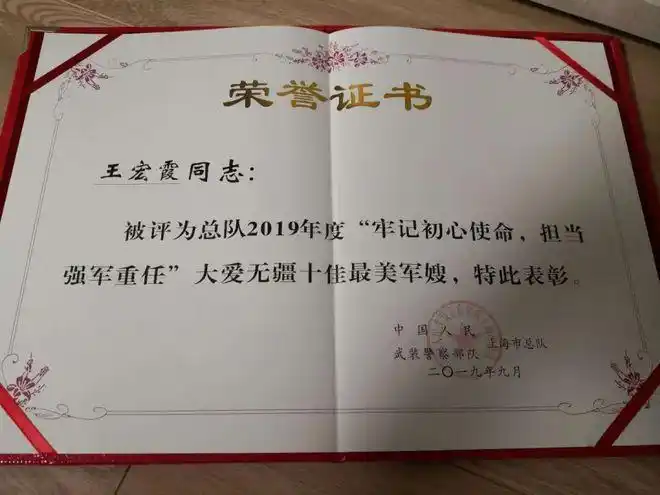 荣誉证书
王宏霞同志：
被评为总队2019年度“牢记初心使命，担当
强军重任”大爱无疆十佳最美军嫂，特此表彰。
中国人民
武装警察部队 上海市总队
二〇一九年九月